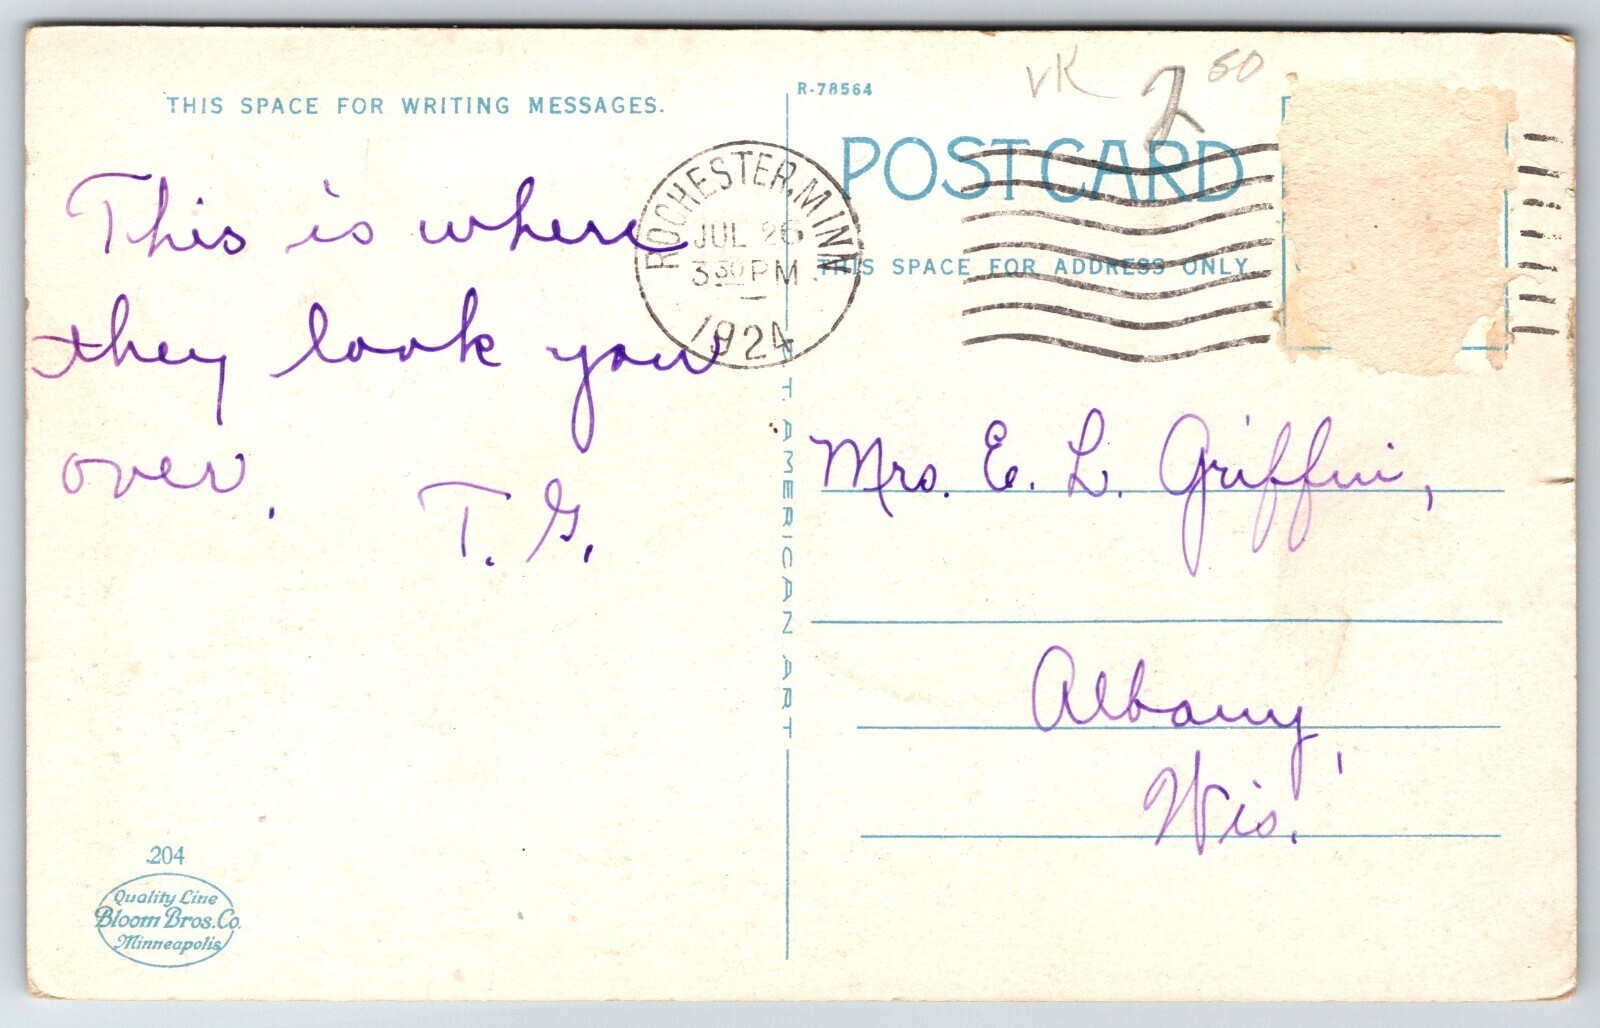 THIS SPACE FOR WRITING MESSAGES.
This is where
they look you
over.
T. G.
.204
Quality Line
Bloom Bros. Co.
Minneapolis
ROCHESTER, MINN
JUL 26
3 30 PM
1924
C.T. AMERICAN ART
R-78564
VK 2 50
POST CARD
THIS SPACE FOR ADDRESS ONLY
Mrs. E. L. Griffin,
Albany,
Wis.